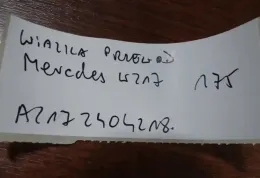 WIĄZKA PRZEWOD
Mercedes W217 175
A2172404218.